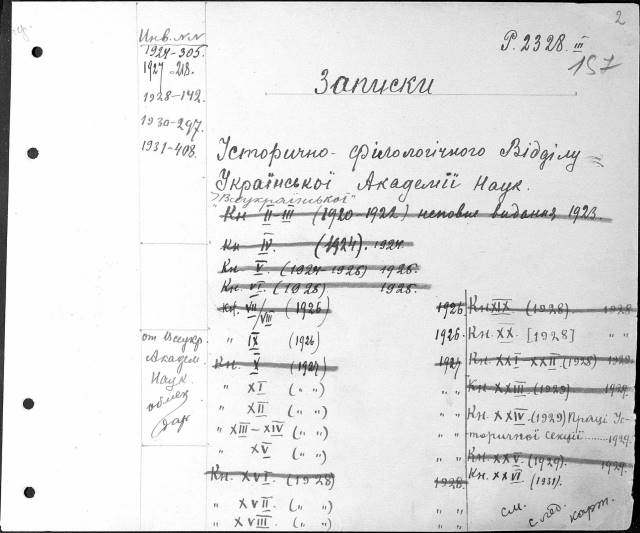 2
Р. 2328. III
157
Инв. NN
1924-305.
1927-218.
1928-142.
1930-297.
1931-408.
Записки
Історично-Філологічного Відділу
Української Академії Наук.
"Всеукраїнської"
Кн II-III (1920-1922) неповне видання 1923.
Кн IV. (1924). 1924.
Кн V. (1924-1925) 1925.
Кн. VI. (1925) 1925.
Кн. VII/VIII (1926) 1926
" IX (1926) 1926.
Кн. X (1927) 1927
" XI (" ") " "
" XII (" ") " "
" XIII-XIV (" ") " "
" XV (" ") " "
Кн. XVI. (1928) 1928.
" XVII. (" ") " "
" XVIII. (" ") " "
Кн. XIX. (1928). 1928.
Кн. XX. [1928] " "
Кн. XXI-XXII. (1928) 1928.
Кн. XXIII. (1929) 1929.
Кн. XXIV. (1929) Праці Іс-
торичної Секції ........ 1929.
Кн. XXV. (1929). 1929.
Кн. XXVI. (1931).
см. след. карт.
от Всеукр.
Академ.
Наук
обмен
дар